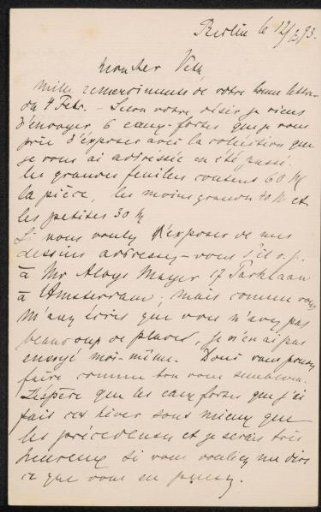 Berlin le 12/2 93.
Mon cher Veth,
Mille remerciments de votre bonne lettre
du 4 Febr. - Selon votre désir je viens
d'envoyer 6 eaux-fortes que je vous
prie d'exposer avec la collection que
je vous ai adressée en été passé.
Les grandes feuilles coutent 60 M
la pièce, les moins grandes 40 M et
les petites 30 M
Si vous voulez exposer de mes
dessins adressez-vous s'il v. p.
à Mr Aloys Mayer 17 Parklaan
à Amsterdam; mais comme vous
m'avez écrit que vous n'avez pas
beaucoup de places, je n'en ai pas
envoyé moi-même. Donc vous pouvez
faire comme bon vous semblera.
J'espère que les eaux fortes que j'ai
fait cet hiver sont mieux que
les précédentes et je serais très
heureux si vous vouliez me dire
ce que vous en pensez.